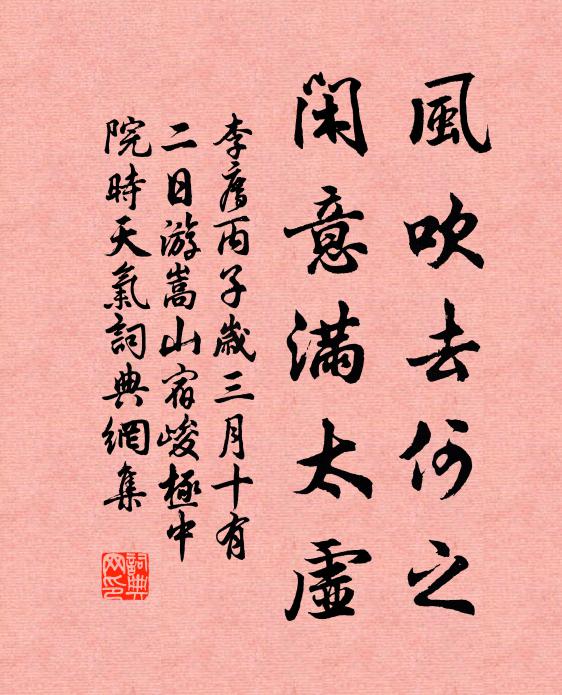 風吹去何之
閑意滿太虛
李廌丙子歲三月十有
二日游嵩山宿峻極中
院時天氣詞典網集
詞典
网印